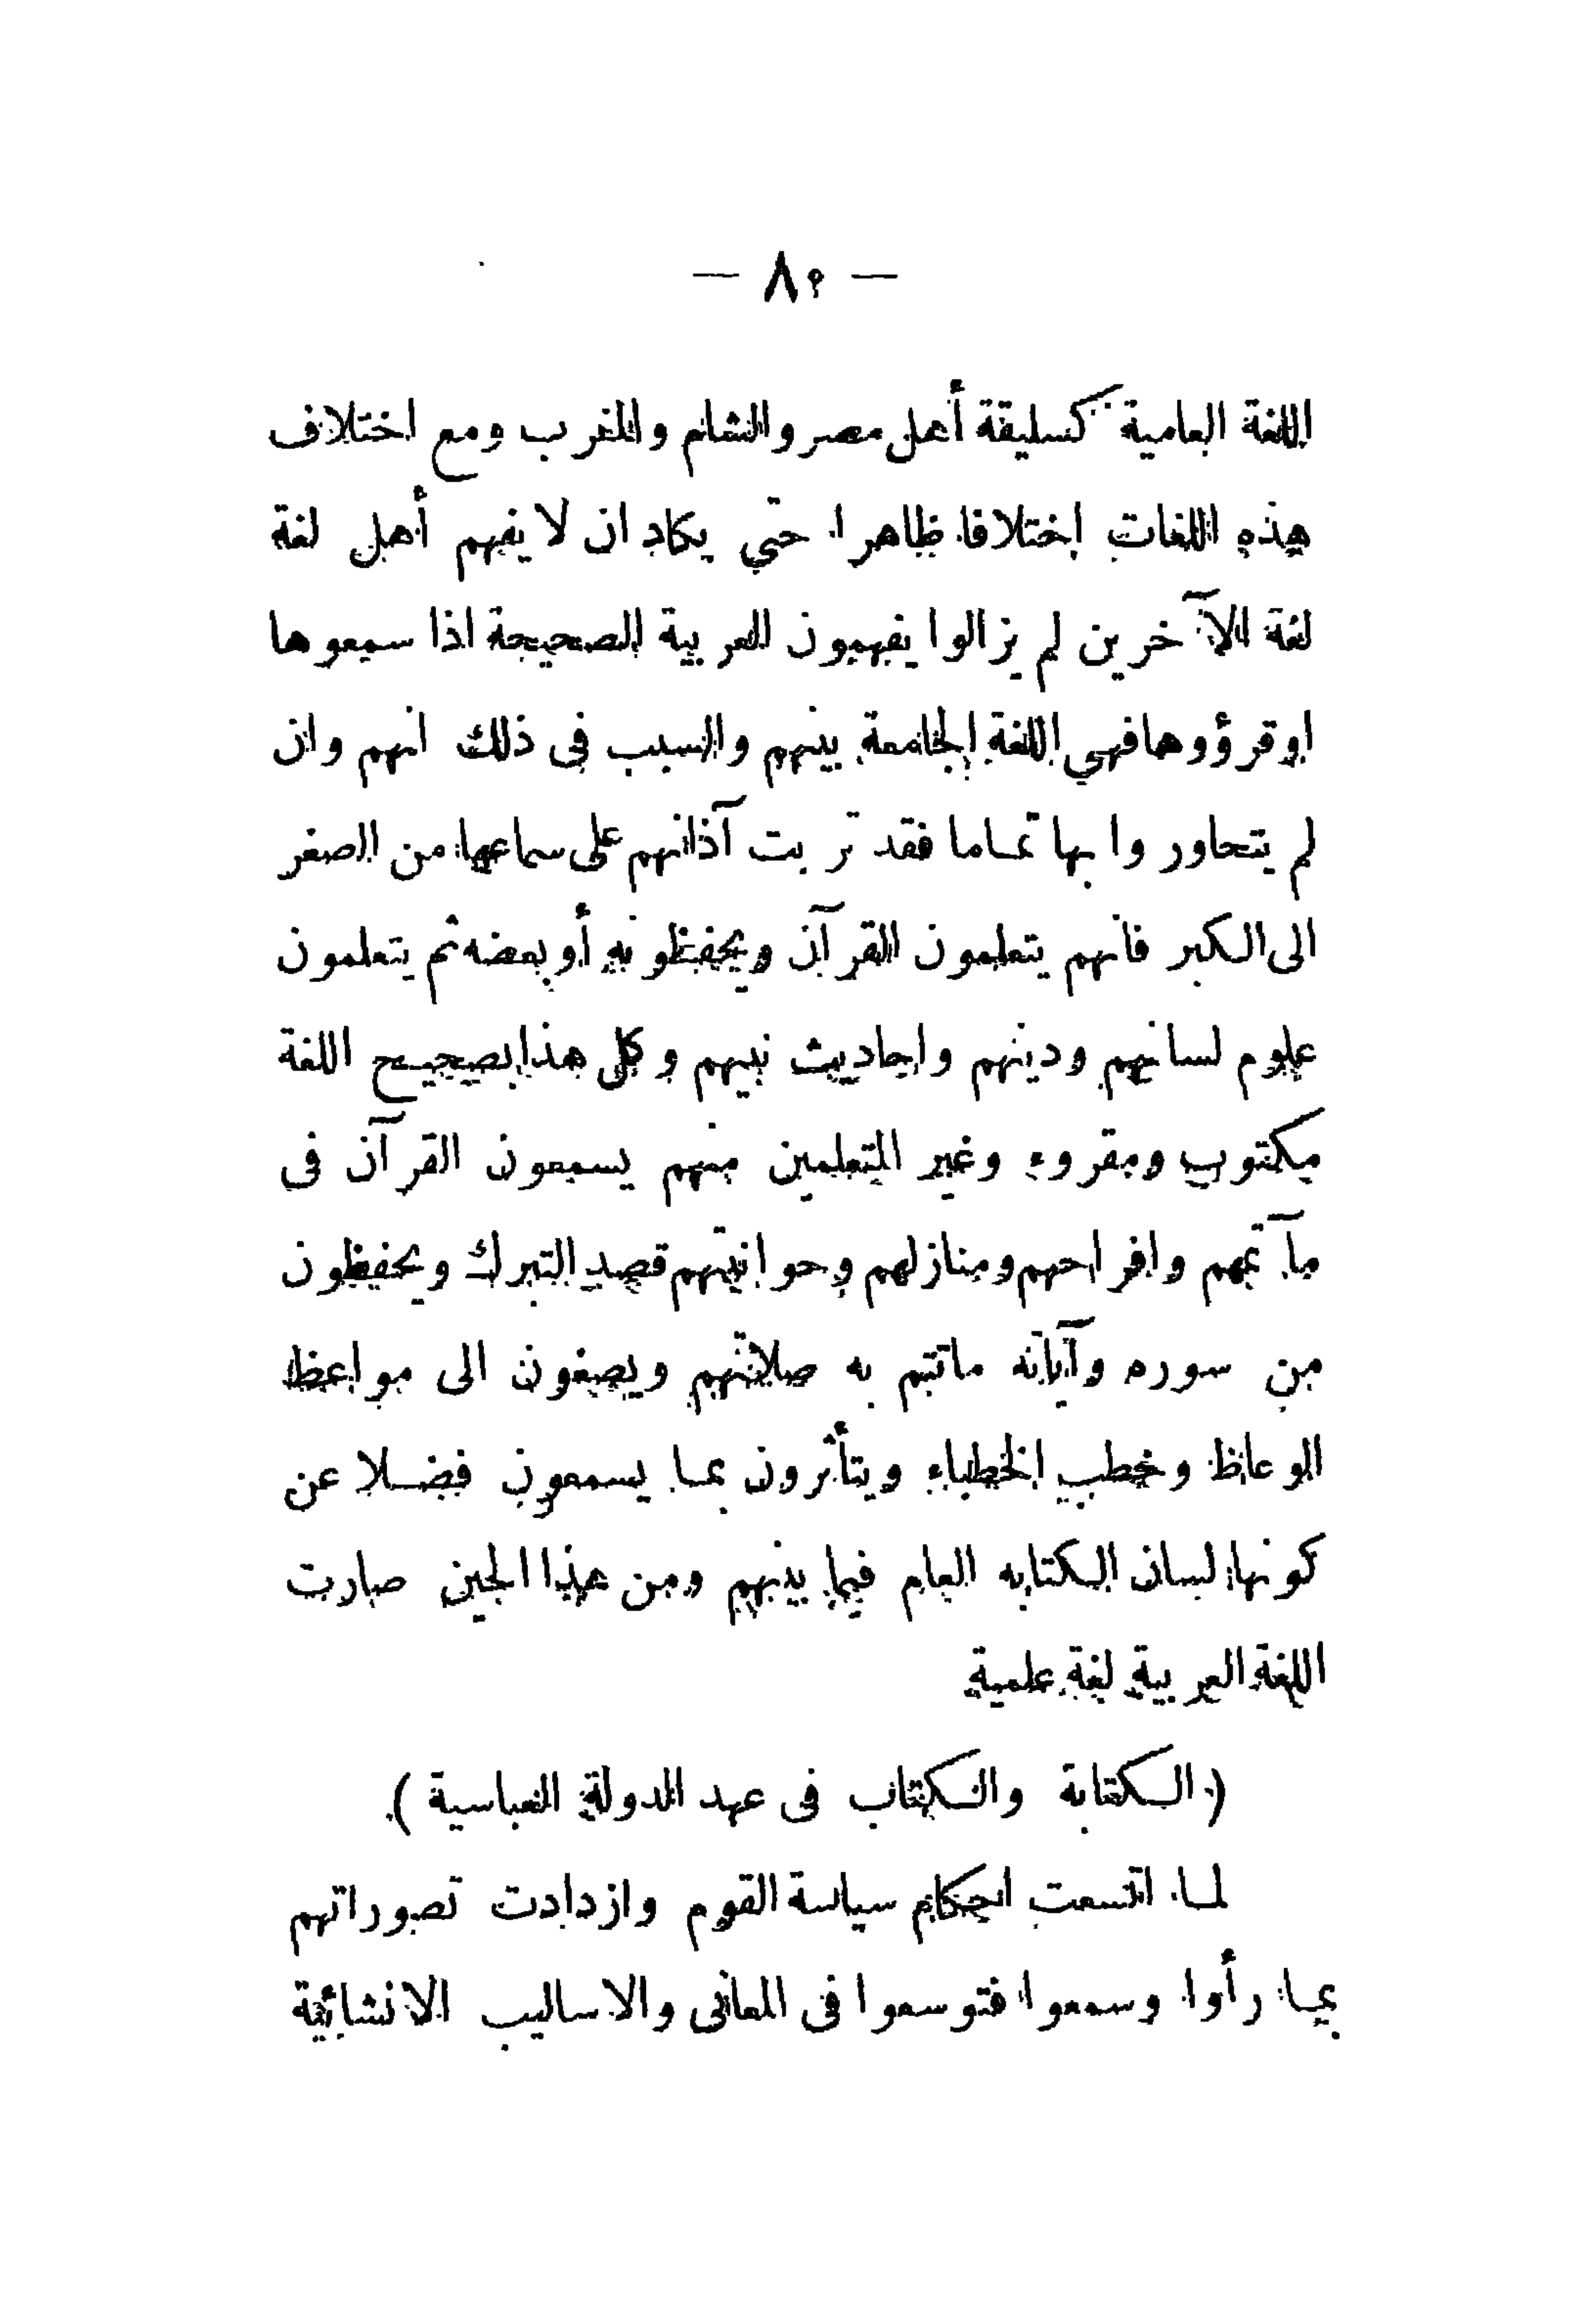 — ٨٩ —
اللغة العامية كسليقة أهل مصر والشام والمغرب ومع اختلاف
هذه اللغات اختلافا ظاهرا حتى يكاد ان لا يفهم أهل لغة
لغة الآخرين لم يزالوا يفهمون العربية الصحيحة اذا سمعوها
اوقرؤوها فهي اللغة الجامعة بينهم والسبب فى ذلك انهم وان
لم يتحاوروا بها تماما فقد تربت آذانهم على سماعها من الصغر
الى الكبر فانهم يتعلمون القرآن ويحفظونه أو بعضه ثم يتعلمون
علوم لسانهم ودينهم واحاديث نبيهم وكل هذا بصحيح اللغة
مكتوب ومقروء وغير المتعلمين منهم يسمعون القرآن فى
مآتمهم وافراحهم ومنازلهم وحوانيتهم قصد التبرك ويحفظون
من سوره وآياته ماتتم به صلاتهم ويصغون الى مواعظ
الوعاظ وخطب الخطباء ويتأثرون بما يسمعون فضلا عن
كونها لسان الكتابه العام فيما بينهم ومن هذا الحين صارت
اللغة العربية لغة علمية
( الكتابة والكتاب فى عهد الدولة العباسية )
لما اتسعت احكام سياسة القوم وازدادت تصوراتهم
بما رأوا وسمعوا فتوسعوا فى المعانى والاساليب الانشائية